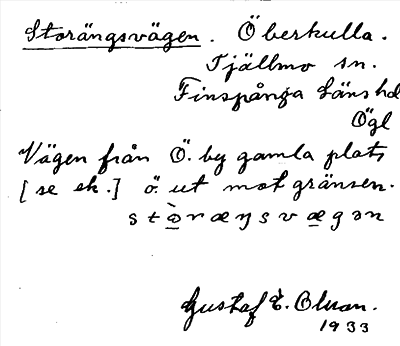 Storängsvägen. Ö berkulla.
Tjällmo sn.
Finspånga Läns hd
Ögl
Vägen från Ö. by gamla plats
[se ek.] ö. ut mot gränsen.
Gustaf E. Olson.
1933